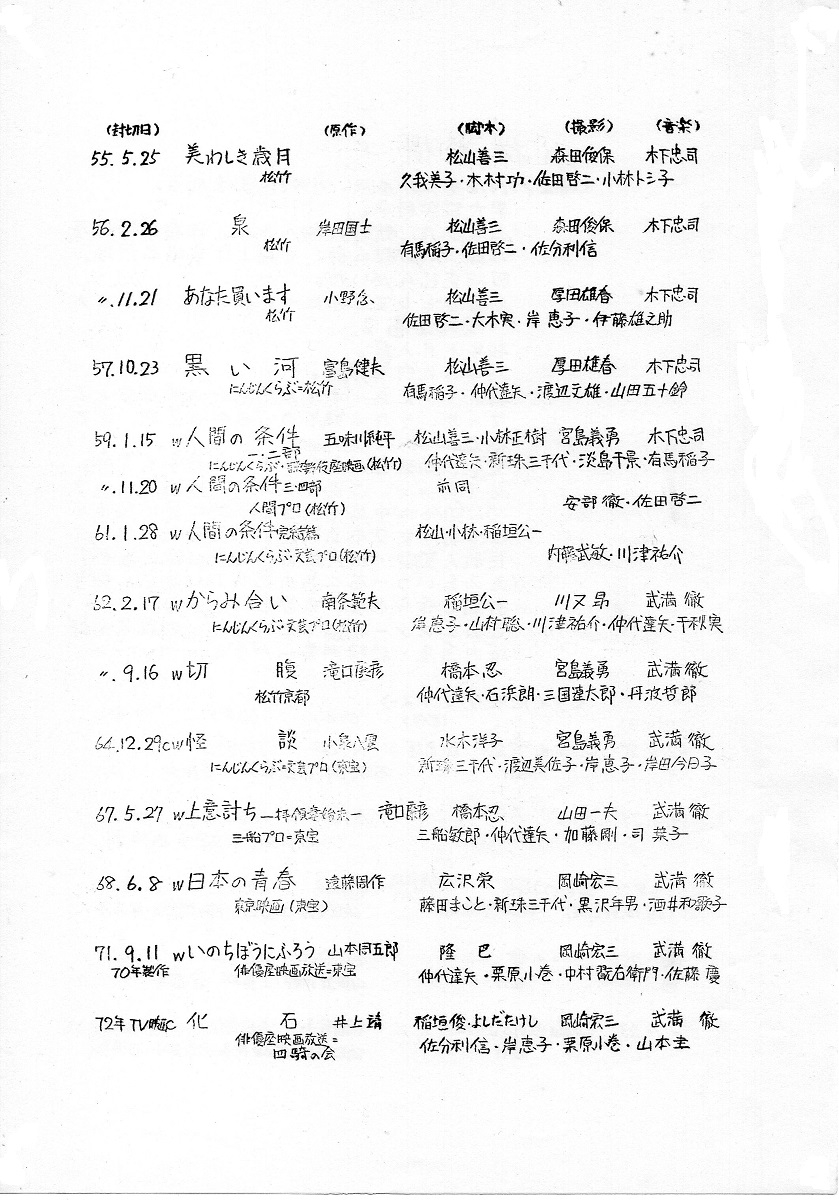 (封切日) (原作) (脚本) (撮影) (音楽)
55. 5. 25 美わしき歳月 松山善三 森田俊保 木下忠司
松竹 久我美子・木村功・佐田啓二・小林トシ子
56. 2. 26 泉 岸田国士 松山善三 森田俊保 木下忠司
松竹 有馬稲子・佐田啓二・佐分利信
〃. 11. 21 あなた買います 小野 松山善三 厚田雄春 木下忠司
松竹 佐田啓二・大木実・岸恵子・伊藤雄之助
57. 10. 23 黒い河 富島健夫 松山善三 厚田雄春 木下忠司
にんじんくらぶ=松竹 有馬稲子・仲代達矢・渡辺文雄・山田五十鈴
59. 1. 15 w人間の条件 五味川純平 松山善三・小林正樹 宮島義勇 木下忠司
一・二部
にんじんくらぶ・歌舞伎座映画(松竹) 仲代達矢・新珠三千代・淡島千景・有馬稲子
〃. 11. 20 w人間の条件三・四部 前同
人間プロ(松竹) 安部徹・佐田啓二
61. 1. 28 w人間の条件完結篇 松山・小林・稲垣公一
にんじんくらぶ・文芸プロ(松竹) 内藤武敏・川津祐介
62. 2. 17 wからみ合い 南条範夫 稲垣公一 川又昂 武満徹
にんじんくらぶ・文芸プロ(松竹) 岸恵子・山村聡・川津祐介・仲代達矢・千秋実
〃. 9. 16 w切腹 滝口康彦 橋本忍 宮島義勇 武満徹
松竹京都 仲代達矢・石浜朗・三国連太郎・丹波哲郎
64. 12. 29 cw怪談 小泉八雲 水木洋子 宮島義勇 武満徹
にんじんくらぶ=文芸プロ(東宝) 新珠三千代・渡辺美佐子・岸恵子・岸田今日子
67. 5. 27 w上意討ち―拝領妻始末― 滝口康彦 橋本忍 山田一夫 武満徹
三船プロ=東宝 三船敏郎・仲代達矢・加藤剛・司葉子
68. 6. 8 w日本の青春 遠藤周作 広沢栄 岡崎宏三 武満徹
東京映画(東宝) 藤田まこと・新珠三千代・黒沢年男・酒井和歌子
71. 9. 11 wいのちぼうにふろう 山本周五郎 隆巴 岡崎宏三 武満徹
70年製作 俳優座映画放送=東宝 仲代達矢・栗原小巻・中村翫右衛門・佐藤慶
72年TV映画C 化石 井上靖 稲垣俊・よしだたけし 岡崎宏三 武満徹
俳優座映画放送= 佐分利信・岸恵子・栗原小巻・山本圭
四騎の会